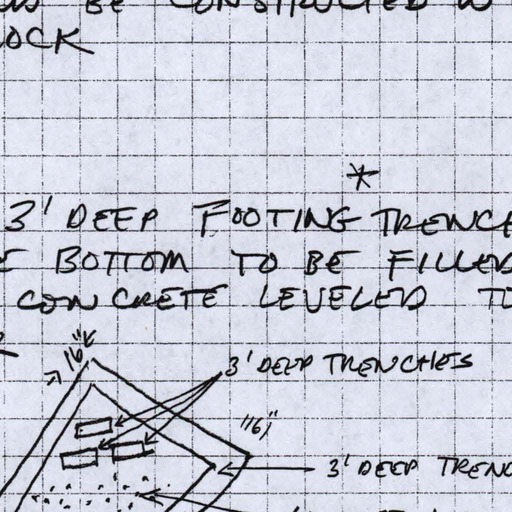 BE CONSTRUCTED
OCK
*
3' DEEP FOOTING TRENCH
E BOTTOM TO BE FILLED
CONCRETE LEVELED TO
16"
3' DEEP TRENCHES
16"
3' DEEP TRENC